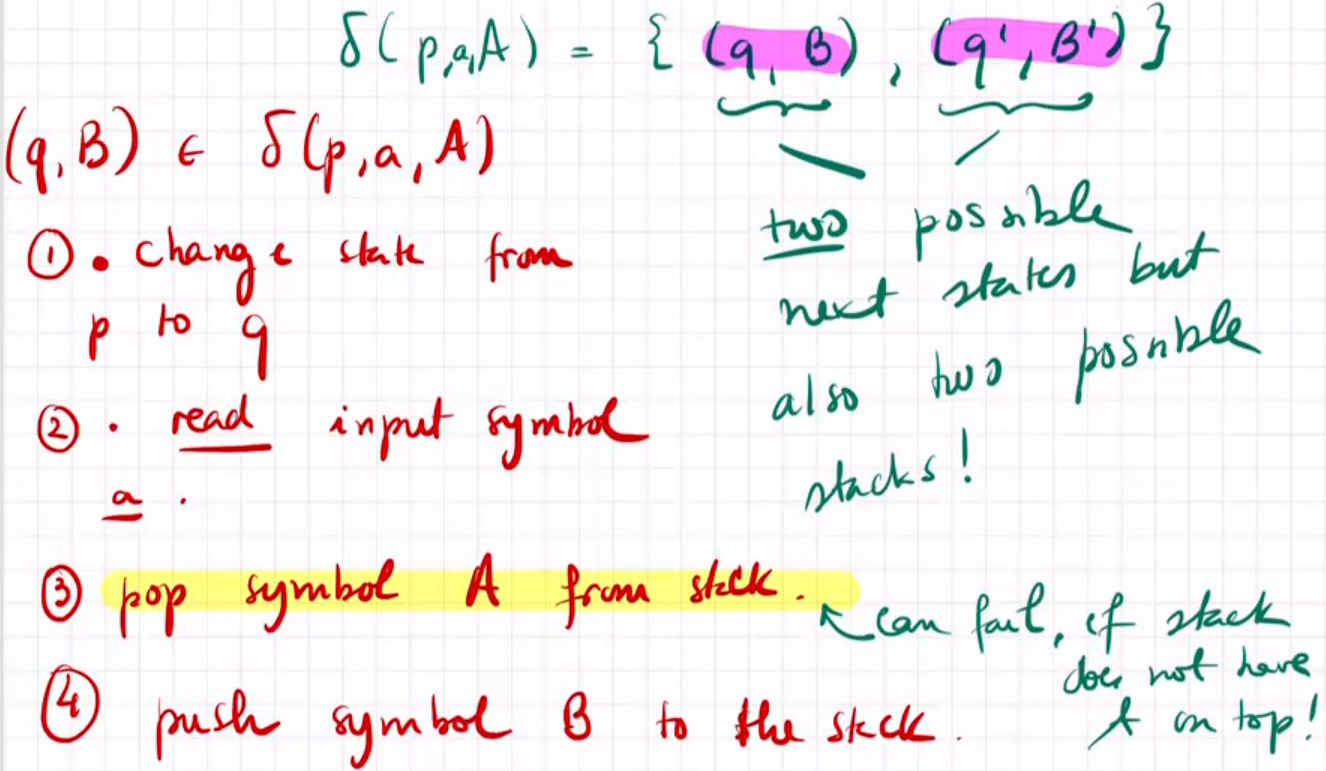 δ(p,a,A) = { (q, B) , (q', B') }
(q, B) ∈ δ(p, a, A)
① • change state from
p to q
② • read input symbol
a .
③ pop symbol A from stack .
④ push symbol B to the stack .
two possible
next states but
also two possible
stacks!
↖ can fail, if stack
does not have
A on top!